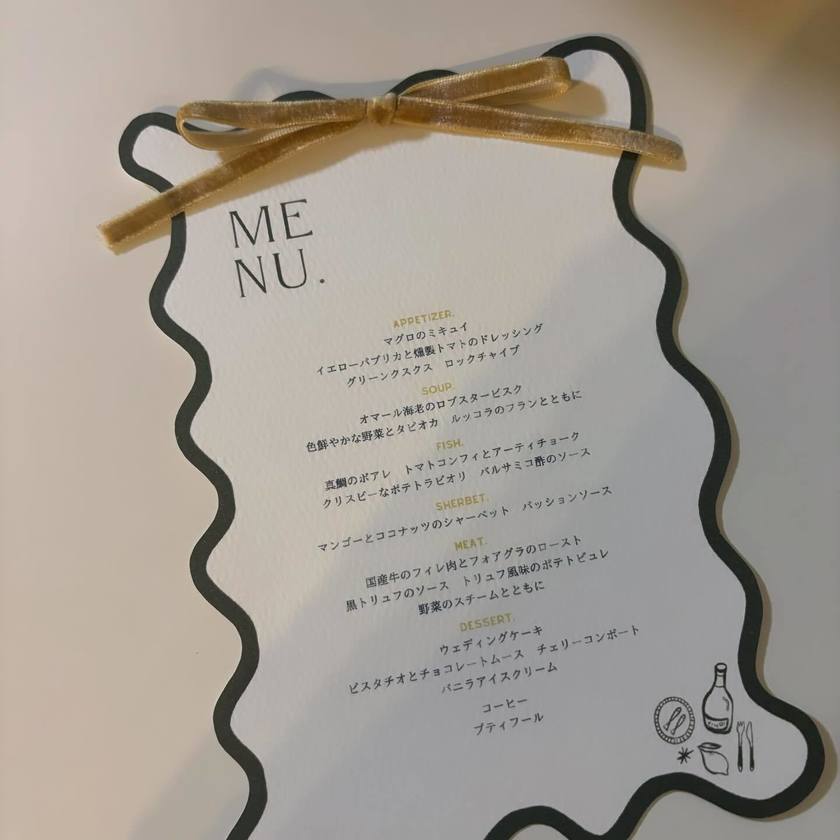 ME
NU.
APPETIZER.
マグロのミキュイ
イエローパプリカと燻製トマトのドレッシング
グリーンクスクス　ロックチャイブ
SOUP.
オマール海老のロブスタービスク
色鮮やかな野菜とタピオカ　ルッコラのフランとともに
FISH.
真鯛のポアレ　トマトコンフィとアーティチョーク
クリスピーなポテトラビオリ　バルサミコ酢のソース
SHERBET.
マンゴーとココナッツのシャーベット　パッションソース
MEAT.
国産牛のフィレ肉とフォアグラのロースト
黒トリュフのソース　トリュフ風味のポテトピュレ
野菜のスチームとともに
DESSERT.
ウェディングケーキ
ピスタチオとチョコレートムース　チェリーコンポート
バニラアイスクリーム
コーヒー
プティフール